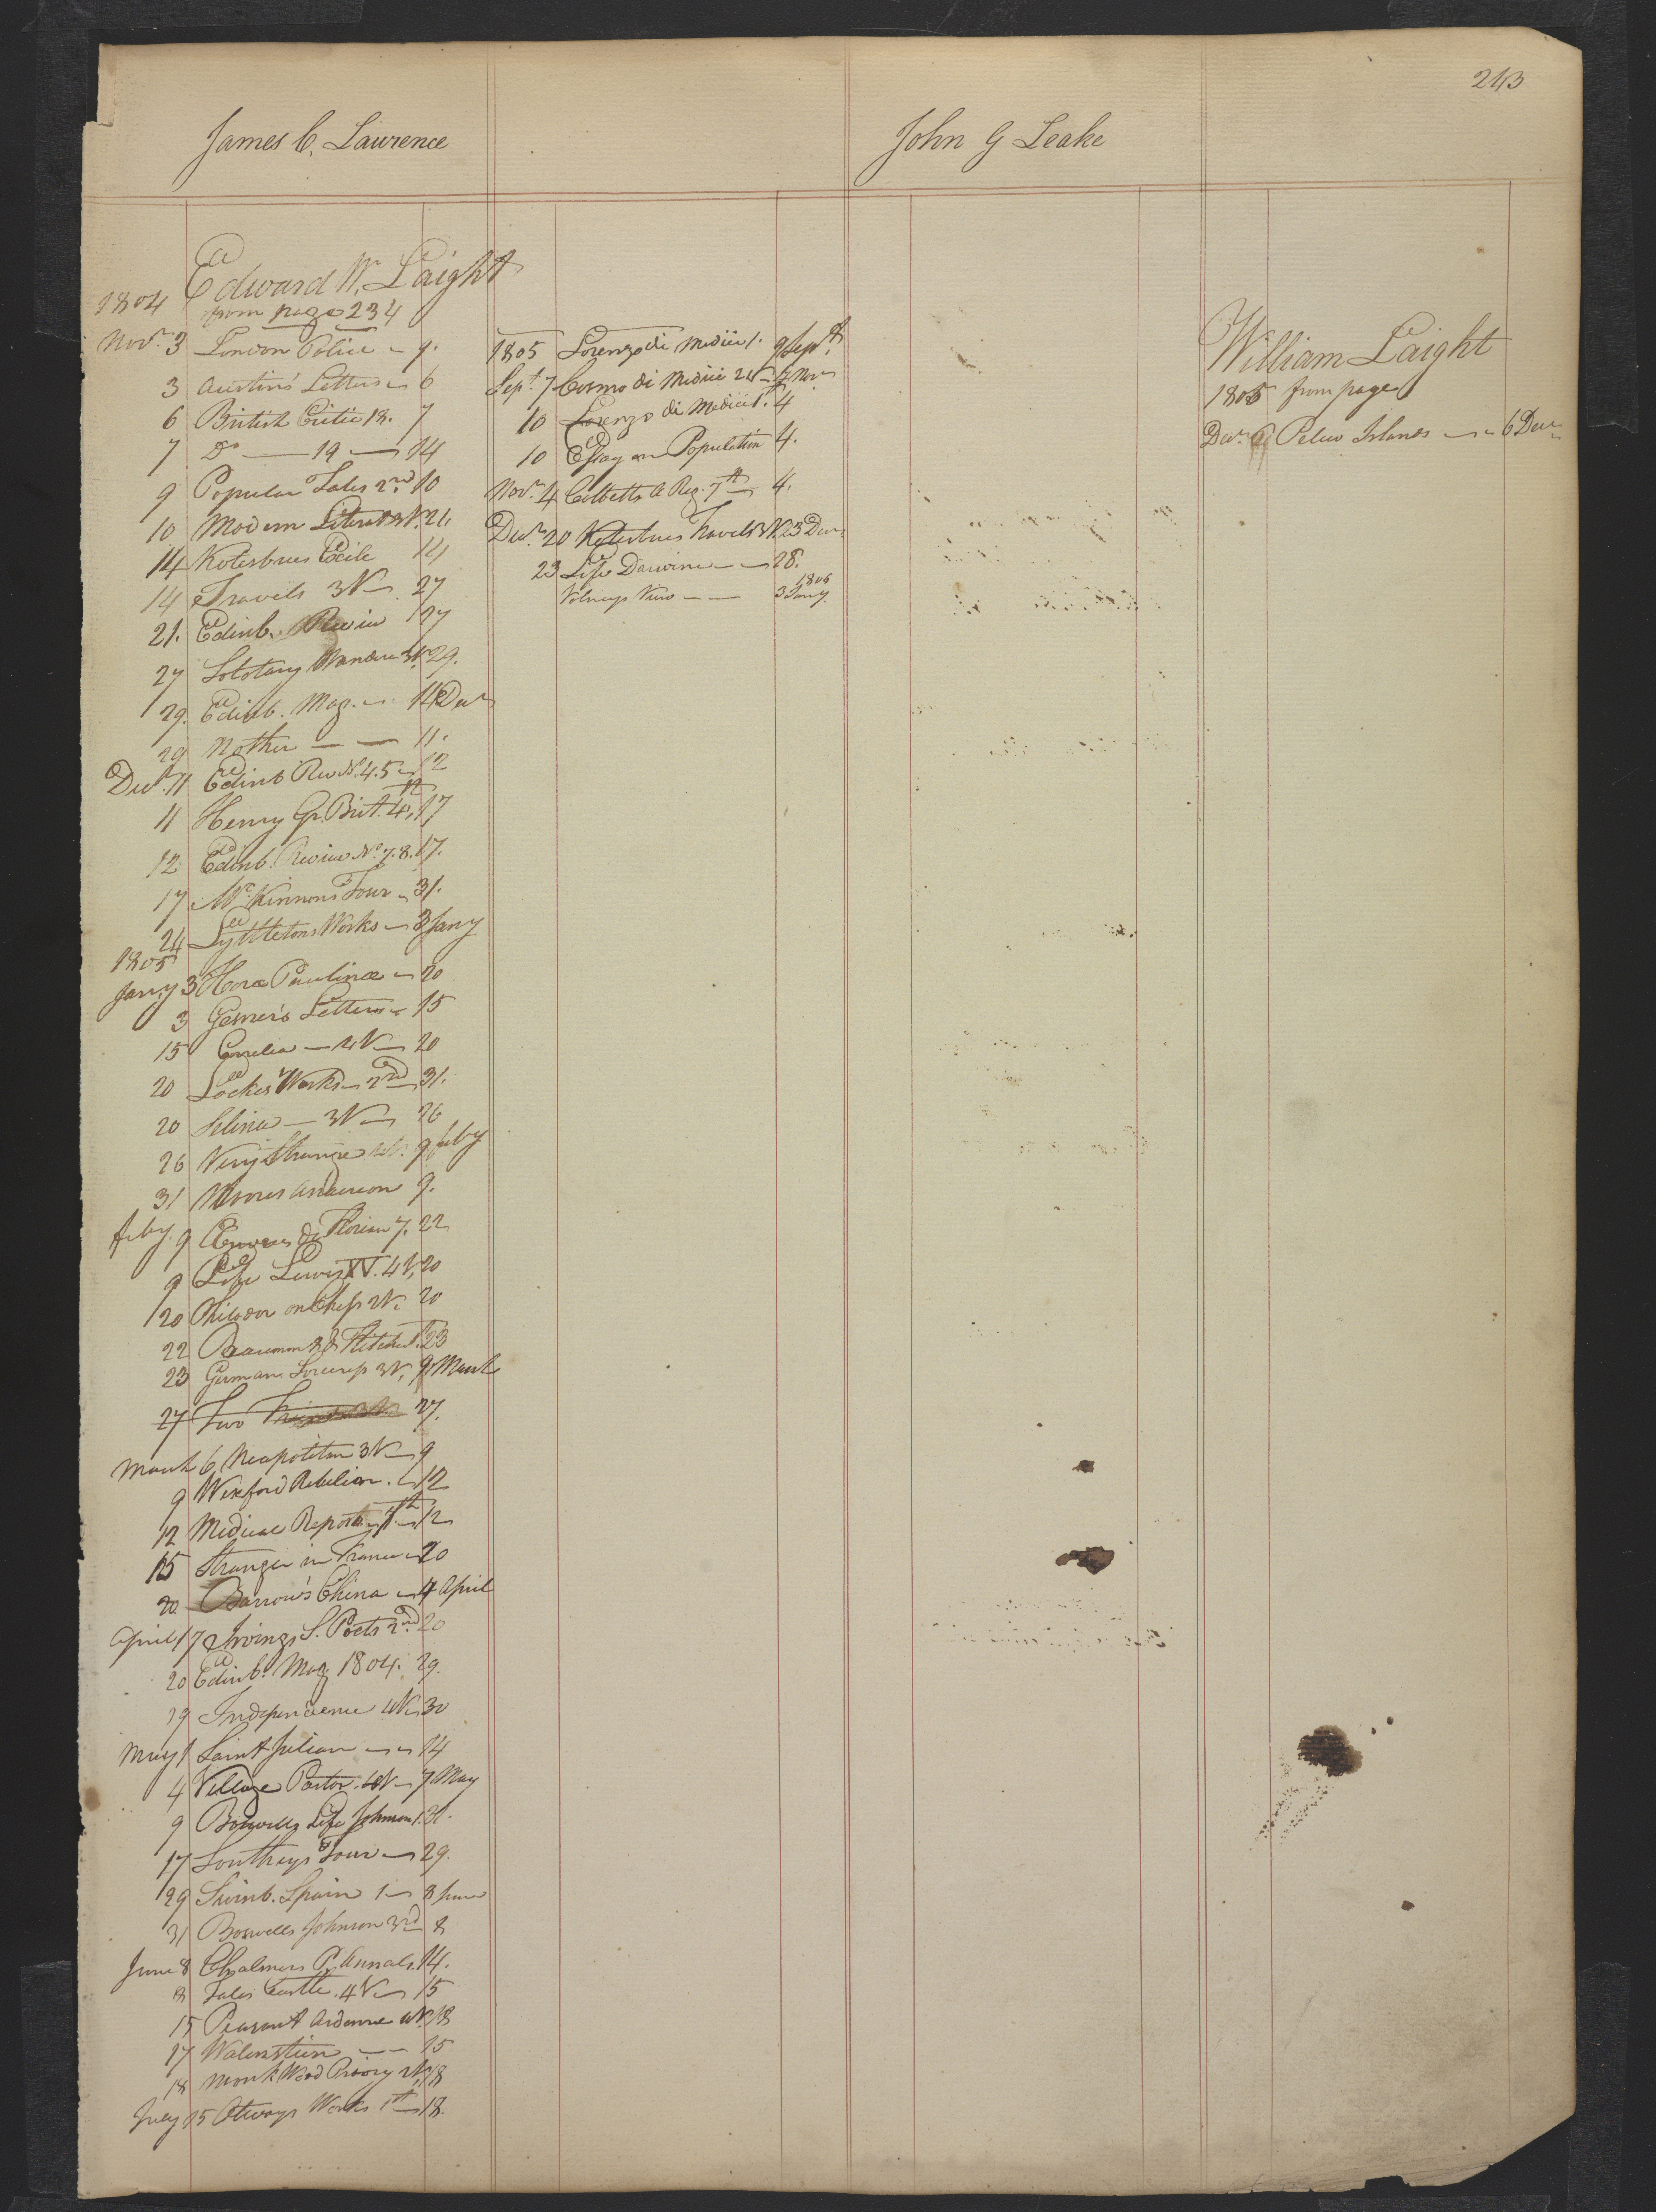 243
James C. Lawrence
John G Leake
Edward W. Laight
1804 from page 234
Nov.r 3 London Police 7.
3 Austin's Letters 6
6 British Critic 18. 7
7 Do — 19 — 14
9 Popular Tales 2nd 10
10 Modern Literat 3V. 21.
14 Kotesbues Exile 14
14 Travels 3V 27
21. Edinb. Review 27
27 Solotary Wanderer 3V. 29.
29. Edinb. Mag. 11 Decr
29 Mother — — 11.
Decr. 11 Edinb Rev No. 4.5 12
11 Henry Gr. Brit. 4th, 17
12 Edinb. Review No. 7.8. 17.
17 McKinnons Tour 31.
24 Lyttletons Works 3 Jany
1805
Jany 3 Horæ Paulinæ 20
3 Gesner's Letters 15
15 Emelia — 2V 20
20 Lockes Works 2nd 31.
20 Selina — 3V 26
26 Very Strange 2V. 9 feby
31 Moores Anderson 9.
feby. 9 Œuvres de Florian 7. 22
9 Life Lewis XV. 4V, 20
20 Philidor on Chess 2V. 20
22 Beaumont & Fletcher 1. 23
23 German Sorceress 3V, 9 March
27 Two Friends 27.
March 6 Neapolitan 3V 9
9 Wexford Rebelion. 12
12 Medical Repos. 7th 12
15 Stranger in France 20
20 Barrow's China 4 April
April 17 Irvings S. Poets 2nd 20
20 Edinb. Mag 1804. 29.
29 Independence 4V 30
May 1 Saint Julian 14
4 Village Pastor. 4V 7 May
9 Boswells Life Johnson 1. 31.
17 Southeys Tour 29.
29 Swinb. Spain 1 8 June
31 Boswells Johnson 3rd 8
June 8 Chalmers P. Annals. 14.
8 Tales Castle. 4V 15
15 Peasant Ardenne 4V. 18
17 Walenstien — — 15
18 Monk Wood Priory 2V, 18
July 15 Otways Works 1st 18.
1805 Lorenzo di Medici 1. 9 Sept.
Sept. 7 Cosmo di Medici 2V 4 Nov
10 Lorenzo di Medici 1st. 4
10 Essay on Population 4.
Nov.r 4 Cobbetts A Reg. 7th 4.
Decr. 20 Kotesbues Travels 3V. 23 Decr
23 Life Darwine — 28.
1806
Volneys View — — 3 Jany.
William Laight
1805 from page
Decr. 6 Pelew Islands — 6 Decr